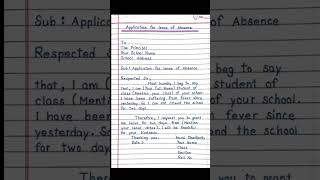 Application for leave of Absence
To
The Principal
Your School Name
School Address
Sub: Application for leave of Absence
Respected Sir,
Most humbly I beg to say
that, I am (Your Full Name) student of
class (Mention your class) of your school.
I have been suffering from fever since
yesterday. So I can not attend the school
for two days.
Therefore, I request you to grant
me leave for two days from (Mention
your leave dates). I will be thankful
for your kindness.
Thanking you. Yours Obediently
Date : Your Name
Class
Section
Roll No
Sub : 
Respected
that, I am
class
I have been
yesterday.
for two days
Absence
beg to say
student of
of your school.
fever since
the school